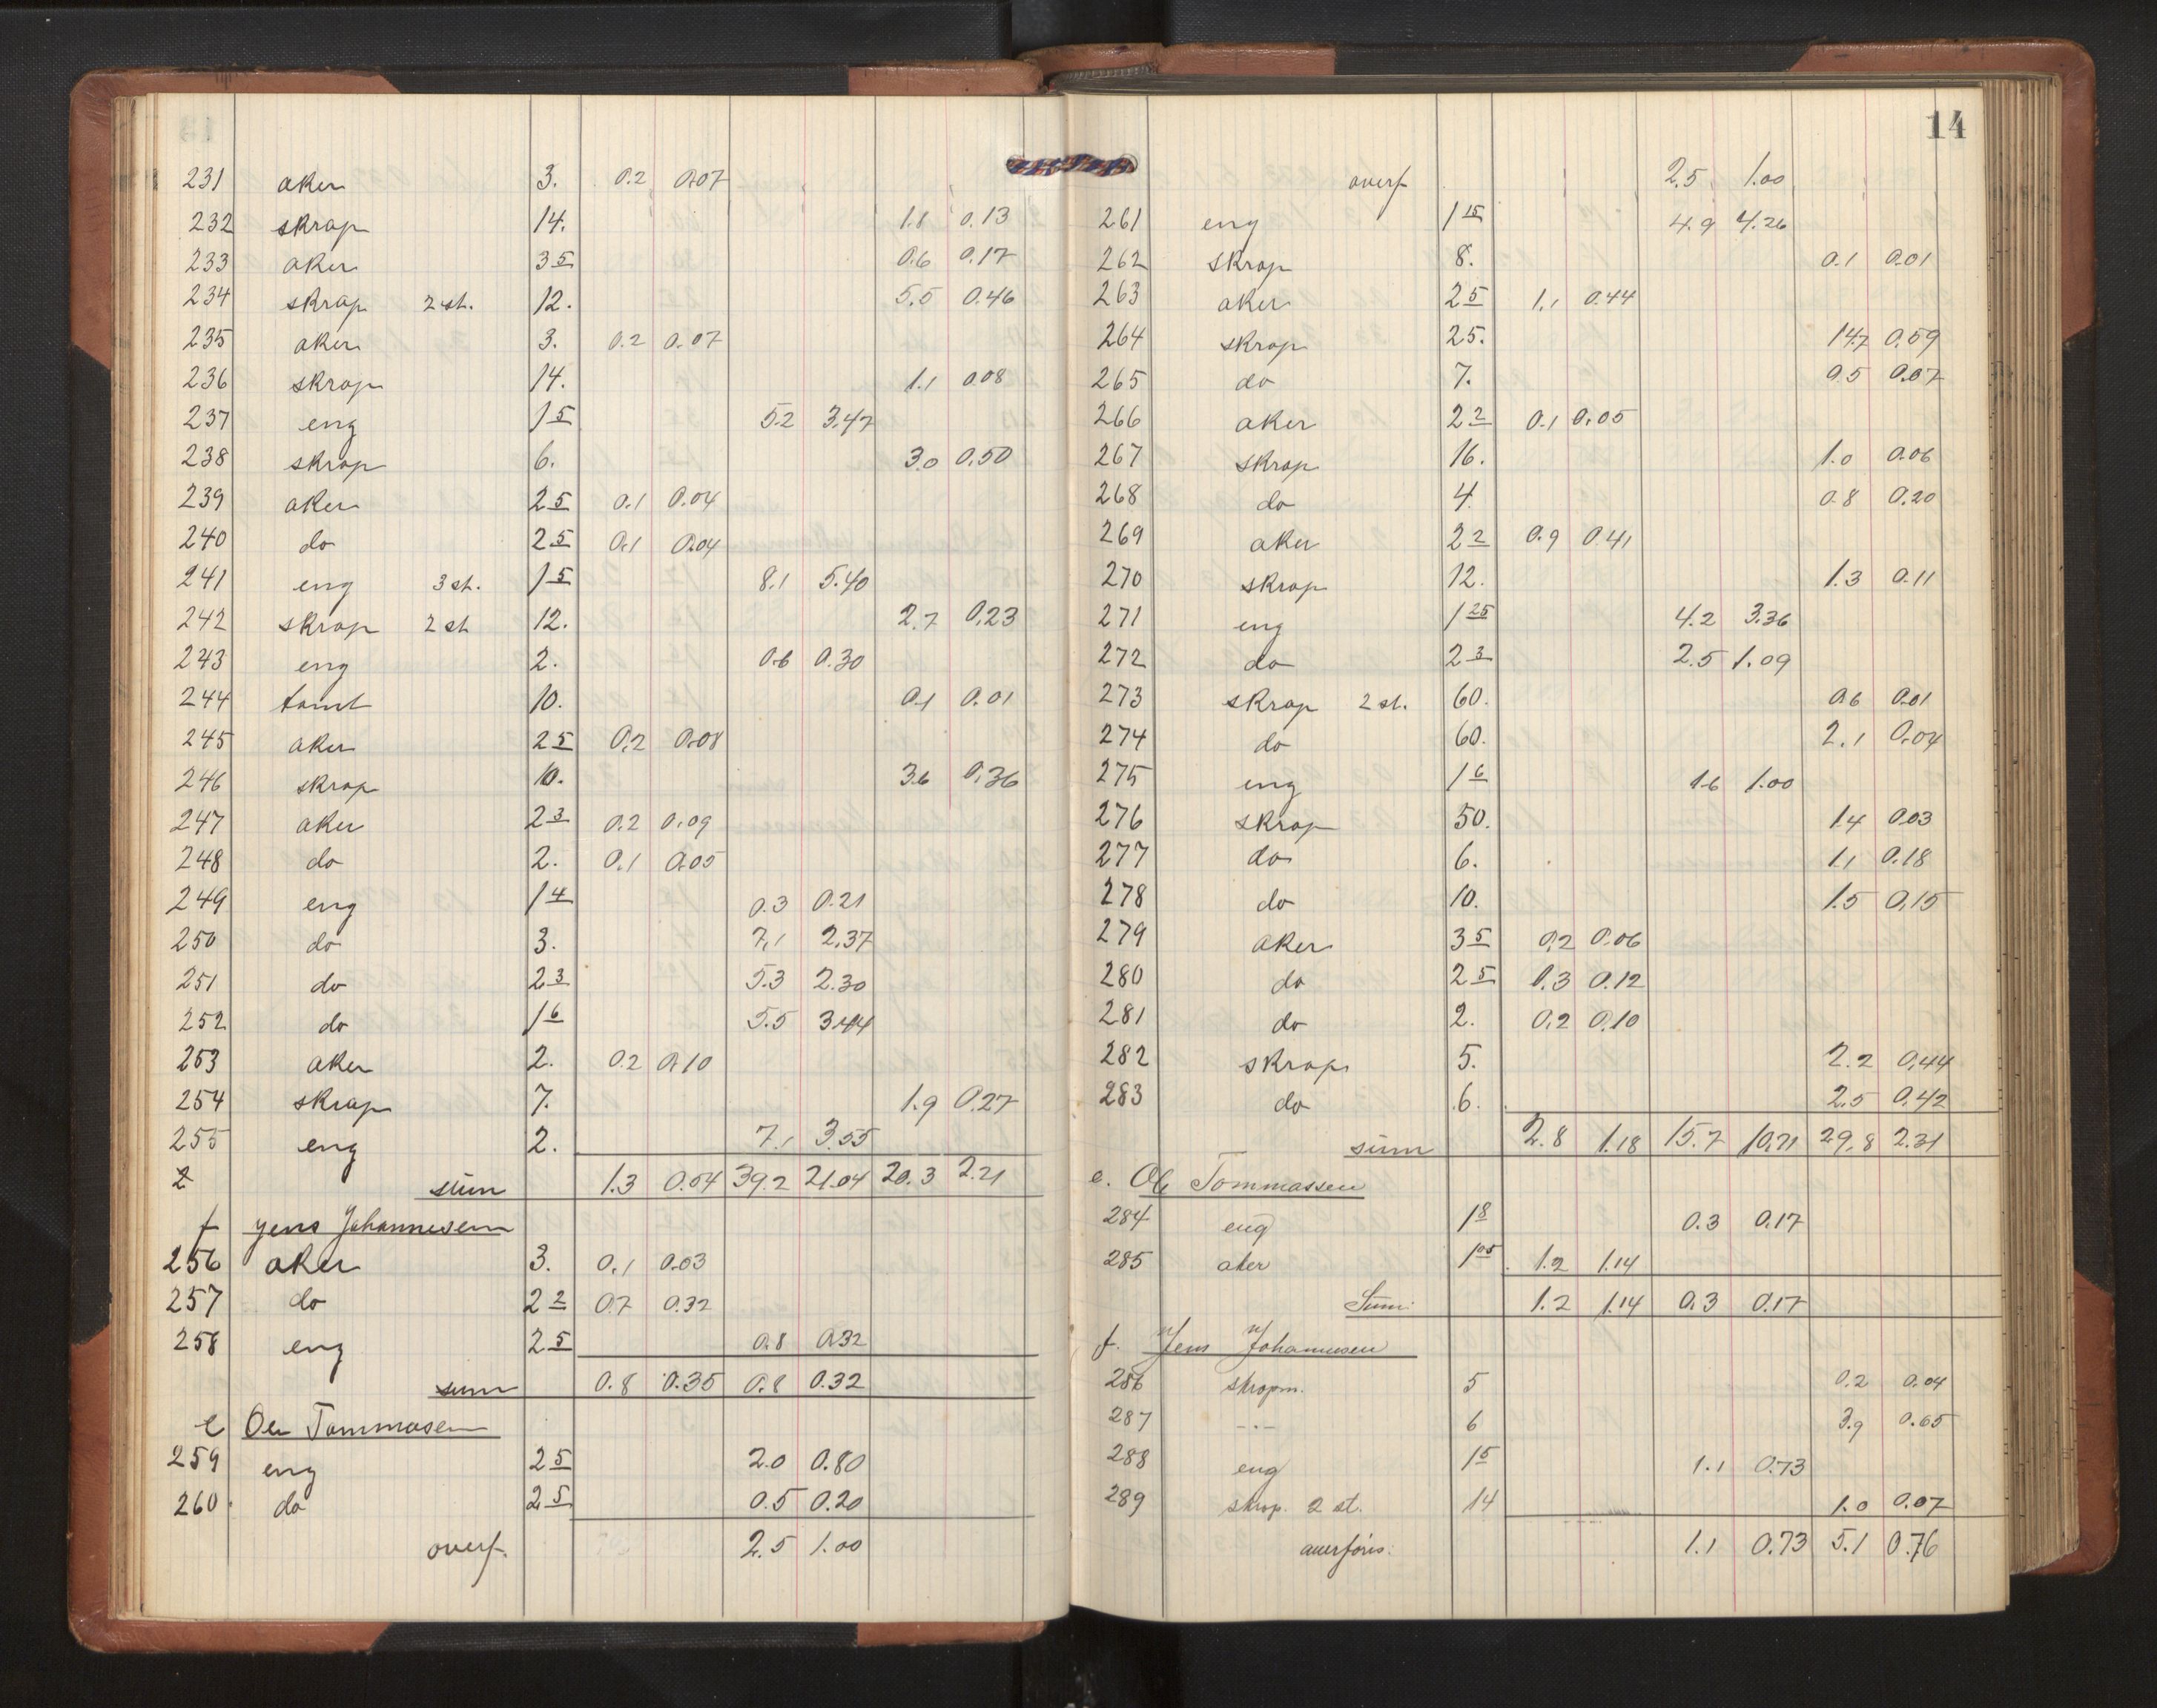 231 aker 3. 0.2 0.07
232 skrap 14. 1.8 0.13
233 aker 3 5 0.6 0.17
234 skrap 2 st. 12. 5.5 0.46
235 aker 3. 0.2 0.07
236 skrap 14. 1.1 0.08
237 eng 1 5 5.2 3.47
238 skrap 6. 3.0 0.50
239 aker 2 5 0.1 0.04
240 do 2 5 0.1 0.04
241 eng 3 st. 1 5 8.1 5.40
242 skrap 2 st 12. 2.7 0.23
243 eng 2. 0.6 0.30
244 tomt 10. 0.1 0.01
245 aker 2 5 0.2 0.08
246 skrap 10. 3.6 0.36
247 aker 2 3 0.2 0.09
248 do 2. 0.1 0.05
249 eng 1 4 0.3 0.21
250 do 3. 7.1 2.37
251 do 2 3 5.3 2.30
252 do 1 6 5.5 3.44
253 aker 2. 0.2 0.10
254 skrap 7. 1.9 0.27
255 eng 2. 7.1 3.55
sum 1.3 0.54 39.2 21.04 20.3 2.21
f Jens Johannesen
256 aker 3. 0.1 0.03
257 do 2 2 0.7 0.32
258 eng 2 5 0.8 0.32
sum 0.8 0.35 0.8 0.32
e Ole Tommasen
259 eng 2 5 2.0 0.80
260 do 2 5 0.5 0.20
overf. 2.5 1.00
14
overf 2.5 1.00
261 eng 1 15 4.9 4.26
262 skrap 8. 0.1 0.01
263 aker 2 5 1.1 0.44
264 skrap 25. 14.7 0.59
265 do 7. 0.5 0.07
266 aker 2 2 0.1 0.05
267 skrap 16. 1.0 0.06
268 do 4. 0.8 0.20
269 aker 2 2 0.9 0.41
270 skrap 12. 1.3 0.11
271 eng 1 25 4.2 3.36
272 do 2 3 2.5 1.09
273 skrap 2 st. 60. 0.6 0.01
274 do 60. 2.1 0.04
275 eng 1 6 1.6 1.00
276 skrap 50. 1.4 0.03
277 do 6. 1.1 0.18
278 do 10. 1.5 0.15
279 aker 3 5 0.2 0.06
280 do 2 5 0.3 0.12
281 do 2. 0.2 0.10
282 skrap 5. 2.2 0.44
283 do 6. 2.5 0.42
sum 2.8 1.18 15.7 10.71 29.8 2.31
e. Ole Tommassen
284 eng 1 8 0.3 0.17
285 aker 1 05 1.2 1.14
Sum: 1.2 1.14 0.3 0.17
f. Jens Johannesen
286 skrapm. 5 0.2 0.04
287 -.- 6 3.9 0.65
288 eng 1 5 1.1 0.73
289 skrap. 2 st. 14 1.0 0.07
overføris: 1.1 0.73 5.1 0.76